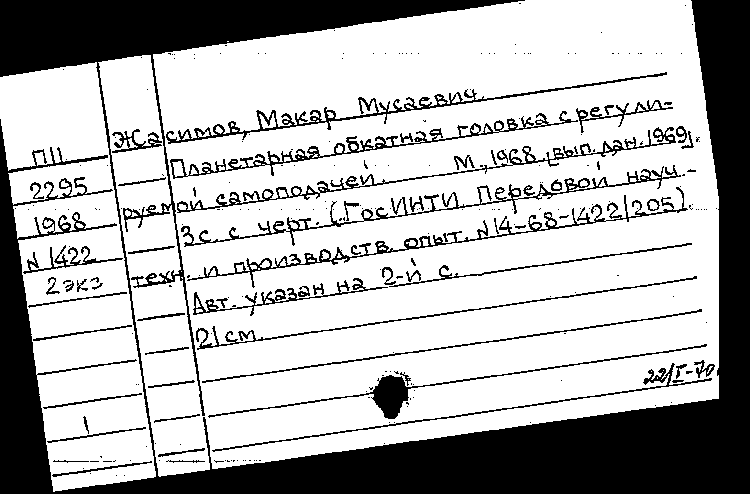 Жасимов, Макар Мусаевич.
П11
Планетарная обкатная головка с регули-
2295
руемой самоподачей. М., 1968, [вып. дан. 1969].
1968
3 с. с черт. (ГосИНТИ. Передовой науч.-
N 1422
техн. и производств. опыт. N 14-68-1422/205).
2 экз
Авт. указан на 2-й с.
21 см.
22/I-70
1